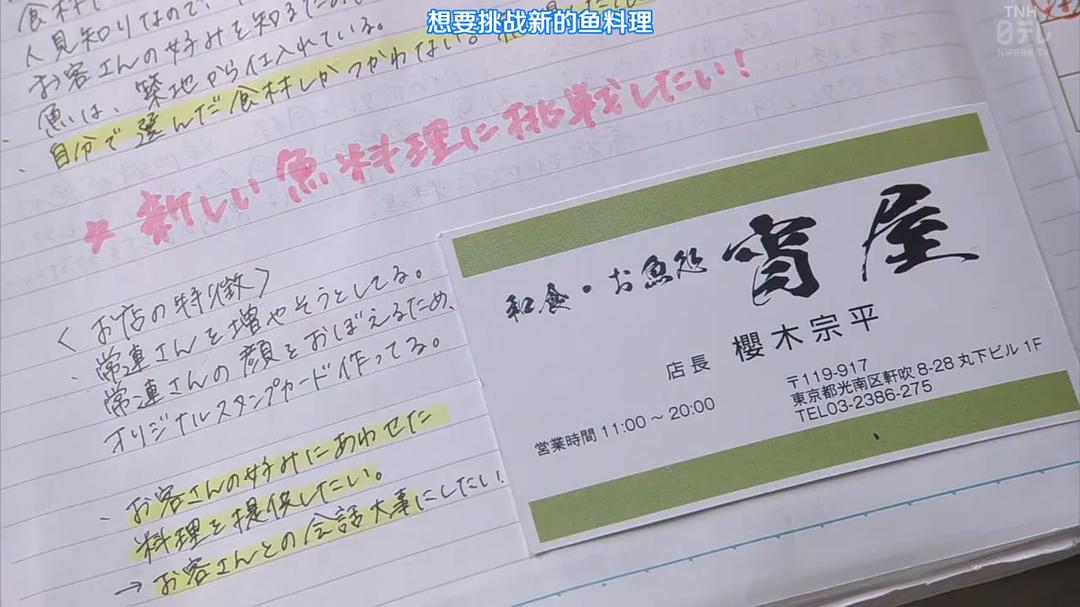 想要挑战新的鱼料理
TNH
日テレ
NIPPON TV
人見知りなので、
お客さんの好みを知るため
魚は、築地から仕入れている。
・自分で選んだ食材しかつかわない。
☆新しい魚料理に挑戦したい!
<お店の特徴>
・常連さんを増やそうとしてる。
常連さんの顔をおぼえるため、
オリジナルスタンプカード作ってる。
・お客さんの好みにあわせた
料理を提供したい。
→お客さんとの会話大事にしたい!
和食・お魚処 宵屋
店長 櫻木宗平
〒119-917
東京都光南区軒吹8-28 丸下ビル 1F
TEL03-2386-275
営業時間 11:00~20:00